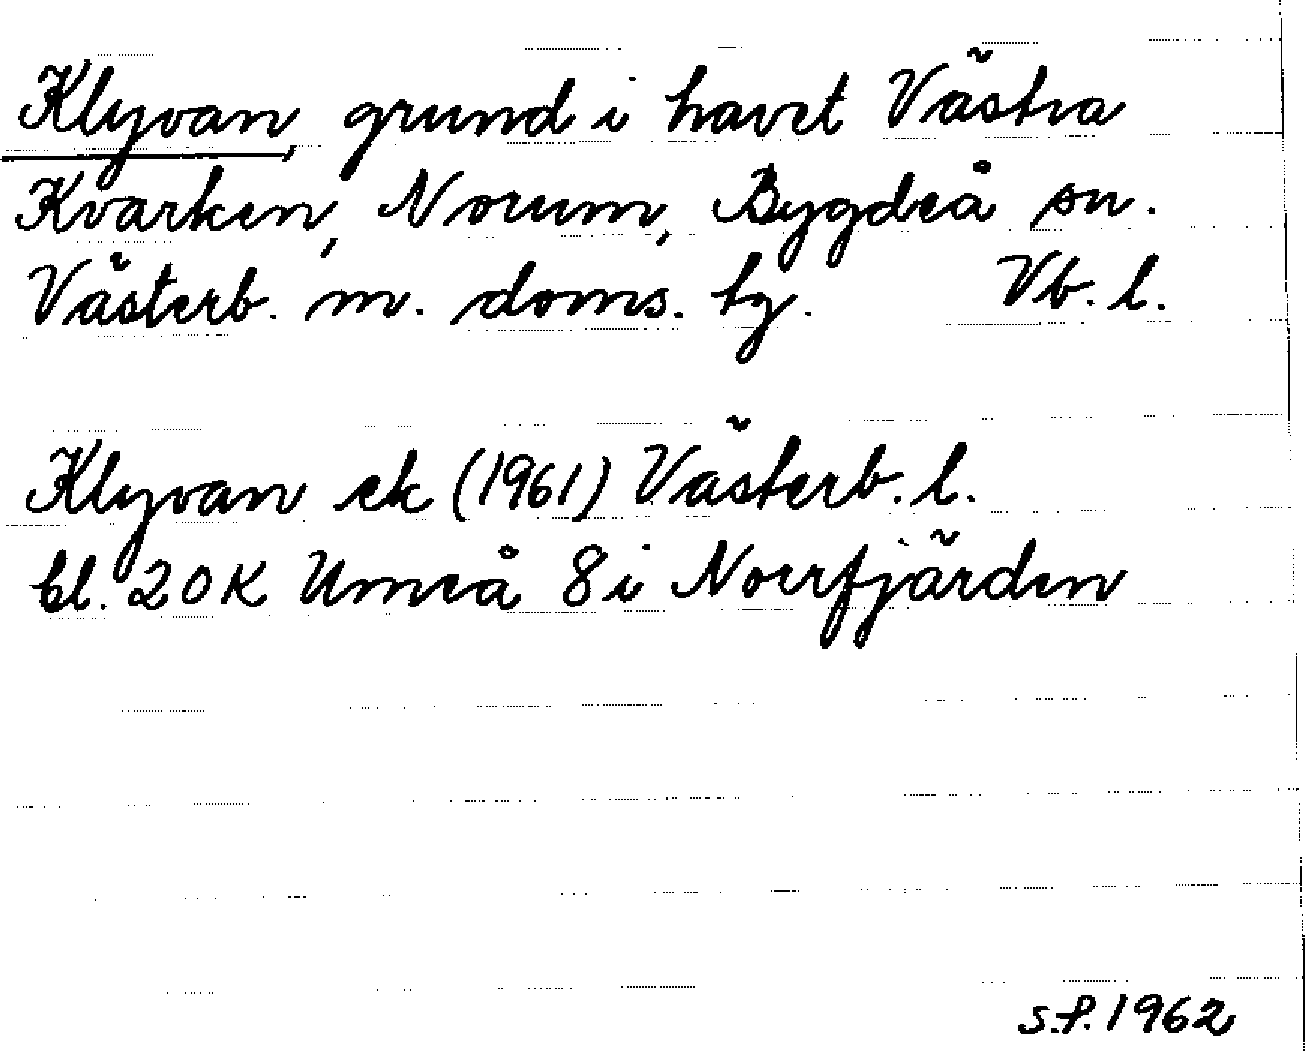 Klyvan, grund i havet Västra
Kvarken, Norum, Bygdeå sn.
Västerb. m. doms. tg. Vb. l.
Klyvan ek (1961) Västerb. l.
bl. 20 K Umeå 8 i Norrfjärden
S.P. 1962